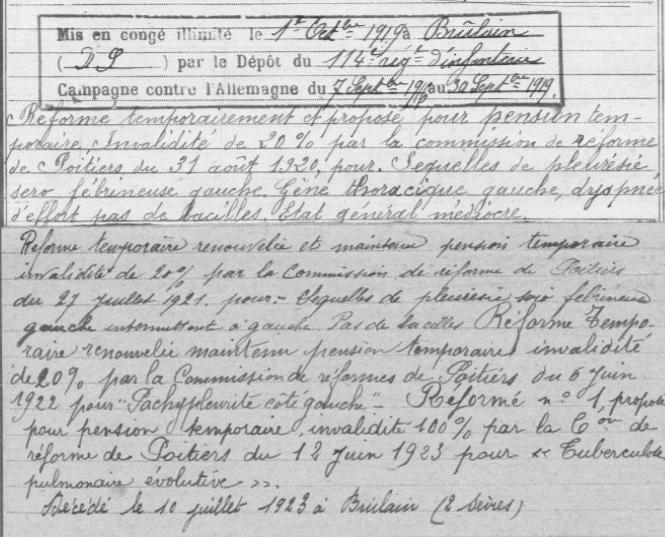 Mis en congé illimité le 1er Octbre 1919 à Brûlain
(D S) par le Dépôt du 114e régt d'infanterie
Campagne contre l'Allemagne du 7 Septbre 1916 au 30 Septbre 1919.
Réformé temporairement et proposé pour pension tem-
poraire, Invalidité de 20% par la commission de réforme
de Poitiers du 31 août 1920, pour. Sequelles de pleurésie
sero fébrineuse gauche. Gêne thoracique gauche, dyspnée
d'effort pas de bacilles. Etat général médiocre.
Réforme temporaire renouvelée et maintenu pension temporaire
invalidité de 20% par la Commission de réforme de Poitiers
du 27 Juillet 1921. pour:- Sequelles de pleurésie sero fébrineuse
gauche intermittent à gauche. Pas de bacilles Réforme Tempo-
raire renouvelée maintenu pension temporaire invalidité
de 20% par la Commission de réformes de Poitiers du 6 Juin
1922 pour "Pachypleurite côté gauche" - Réformé n° 1, proposé
pour pension temporaire, invalidité 100% par la Con de
réforme de Poitiers du 12 Juin 1923 pour « Tuberculose
pulmonaire évolutive ».
Décédé le 10 juillet 1923 à Brûlain (2 Sèvres)